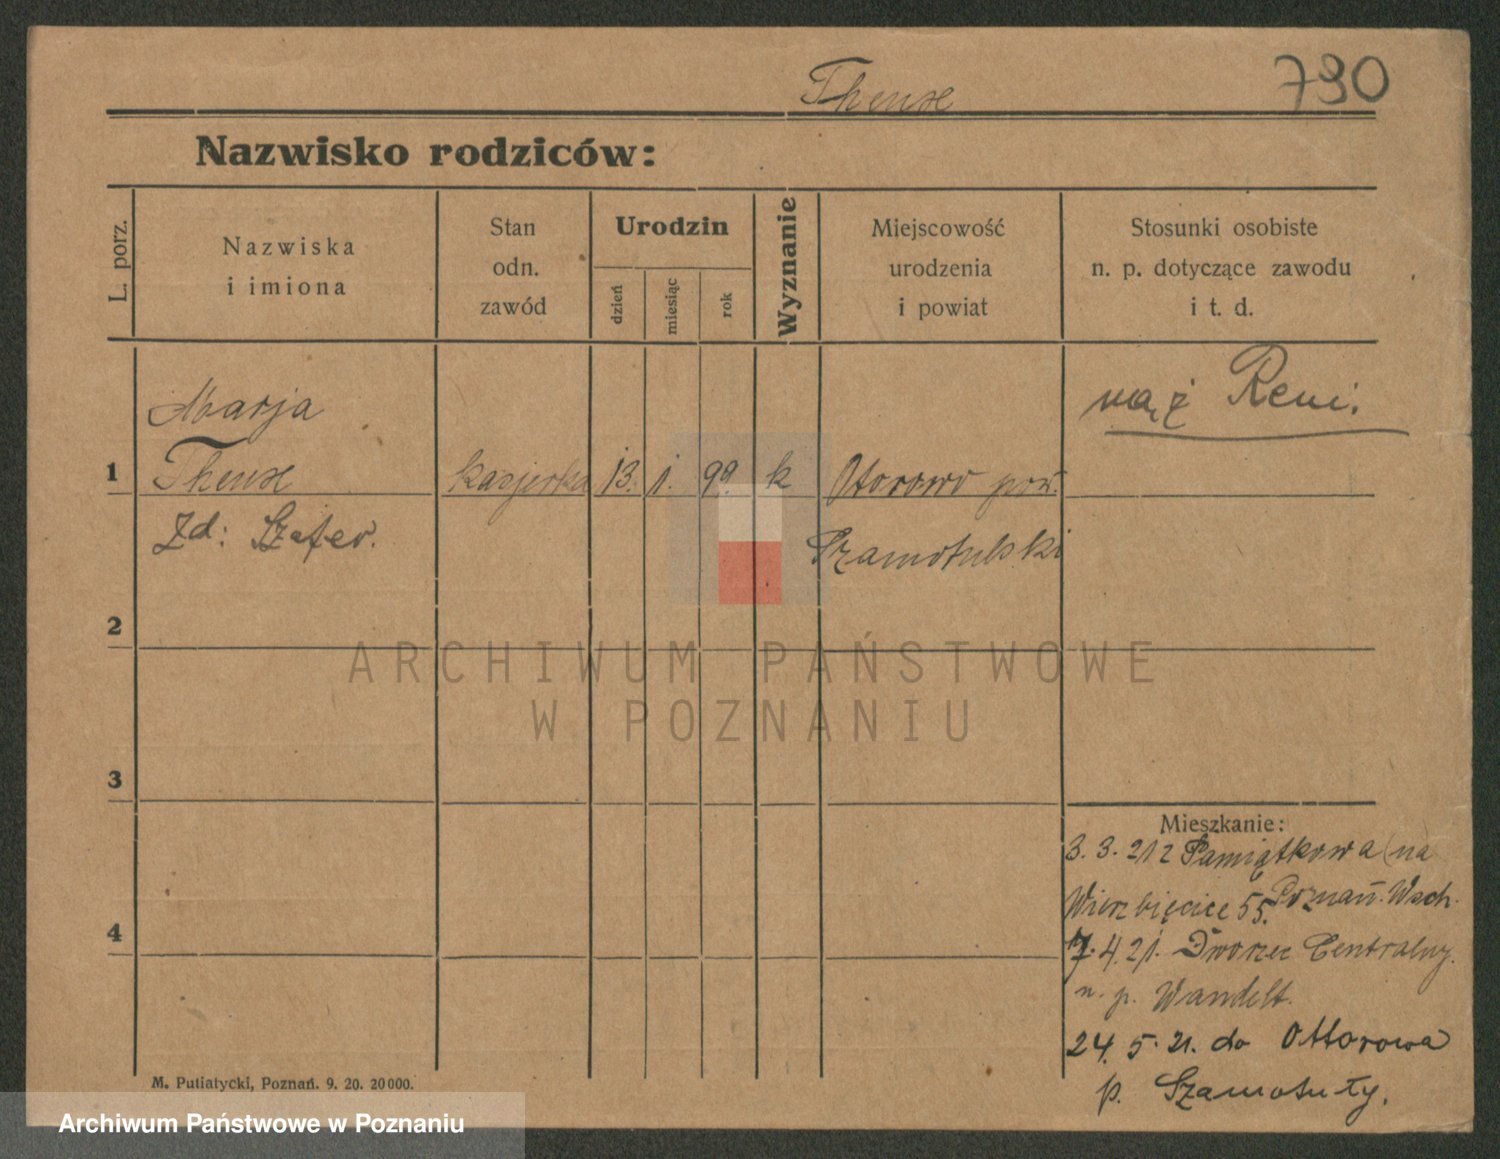 Theuse
790
Nazwisko rodziców:
L. porz.
Nazwiska
i imiona
Stan
odn.
zawód
Urodzin
dzień
miesiąc
rok
Wyznanie
Miejscowość
urodzenia
i powiat
Stosunki osobiste
n. p. dotyczące zawodu
i t. d.
Marja
mąż Reni.
1
Theuse
kasjerka
13.
1.
99.
k
Otorowo pow.
Zd: Szafer.
Szamotulski
2
ARCHIWUM PAŃSTWOWE
W POZNANIU
3
Mieszkanie:
3. 3. 21 z Pamiątkowa (na
Wierzbięcice 55. Poznań. Wsch.
4
7. 4. 21. Dworzec Centralny.
n. p. Wandelt.
24. 5. 21. do Ottorowa
p. Szamotuły.
M. Putiatycki, Poznań. 9. 20. 20000.
Archiwum Państwowe w Poznaniu